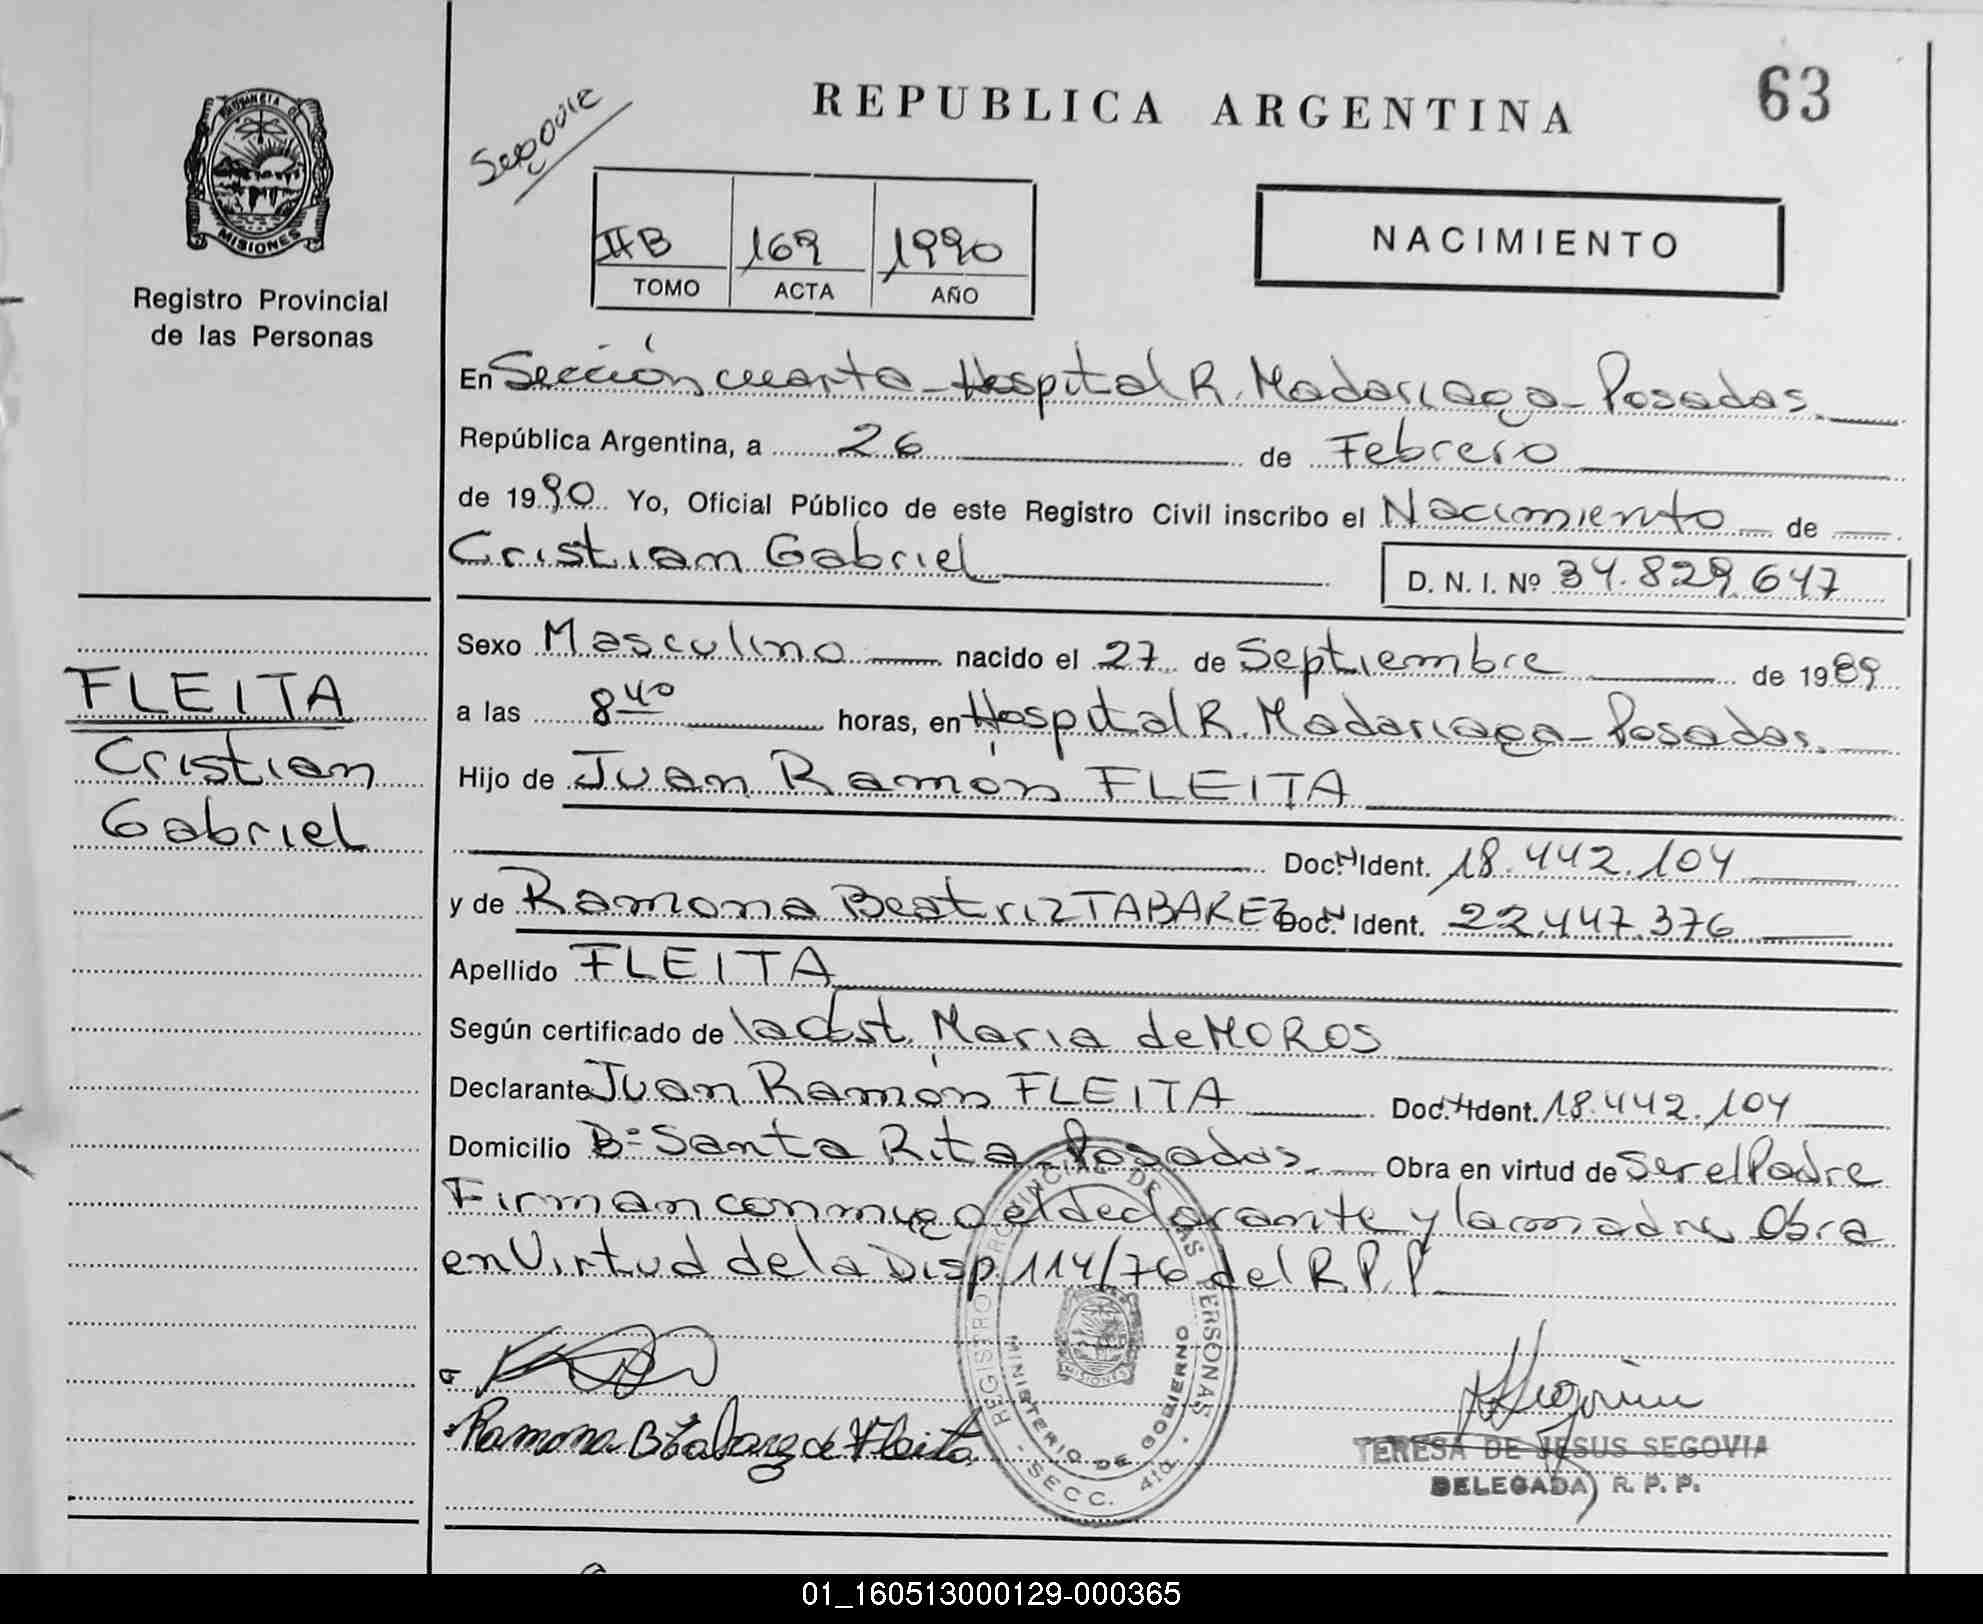 63
REPUBLICA ARGENTINA
Segovia
PROVINCIA DE
MISIONES
Registro Provincial
de las Personas
IIB 169 1990
TOMO ACTA AÑO
NACIMIENTO
En Sección cuarta - Hospital R. Madariaga - Posadas.
República Argentina, a 26 de Febrero
de 1990 Yo, Oficial Público de este Registro Civil inscribo el Nacimiento de
Cristian Gabriel D. N. I. Nº 34.829.647
Sexo Masculino nacido el 27 de Septiembre de 1989
FLEITA
Cristian
Gabriel
a las 8 40 horas, en Hospital R. Madariaga - Posadas.
Hijo de Juan Ramón FLEITA
Doc. Ident. 18.442.104
y de Ramona Beatriz TABAREZ Doc. Ident. 22.447.376
Apellido FLEITA
Según certificado de la Obst. María de MOROS
Declarante Juan Ramón FLEITA Doc. Ident. 18.442.104
Domicilio Bº Santa Rita - Posadas. Obra en virtud de Ser el Padre
Firman conmigo el declarante y la madre Obra
en Virtud de la Disp. 114/76 del R.P.P
REGISTRO PROVINCIAL DE LAS PERSONAS
MINISTERIO DE GOBIERNO
MISIONES
- SECC. 4ta. -
Ramona B Tabarez de Fleita
Segovia
TERESA DE JESUS SEGOVIA
DELEGADA R. P. P.
01_160513000129-000365